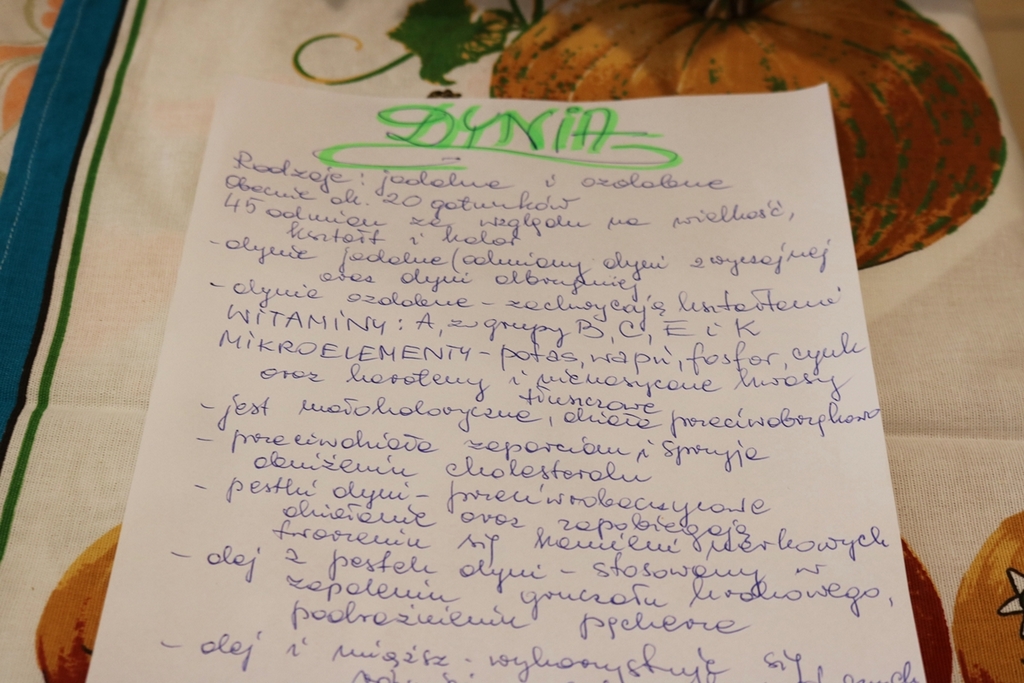 DYNIA
Rodzaje: jadalne i ozdobne
obecnie ok. 20 gatunków
45 odmian ze względu na wielkość,
kształt i kolor
- dynie jadalne (odmiany dyni zwyczajnej
oraz dyni olbrzymiej
- dynie ozdobne - zachwycają kształtami
WITAMINY: A, z grupy B, C, E i K
MIKROELEMENTY - potas, wapń, fosfor, cynk
oraz karoteny i nienasycone kwasy
tłuszczowe
- jest małokaloryczna, działa przeciwobrzękowo
- przeciwdziała zaparciom i sprzyja
obniżeniu cholesterolu
- pestki dyni - przeciwrobaczycowe
działanie oraz zapobiegają
tworzeniu się kamieni nerkowych
- olej z pestek dyni - stosowany w
zapaleniu gruczołu krokowego,
podrażnieniu pęcherza
- olej i miąższ - wykorzystuje się